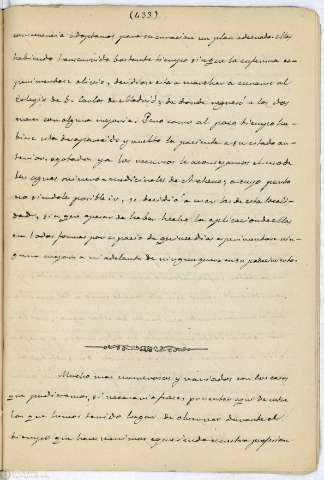 (433)
consecuencia adoptamos para su curacion un plan adecuado. Mas
habiendo transcurrido bastante tiempo sin que la enferma es-
perimentase alivio, decidiose esta a marchar a curarse al
Colegio de S. Carlos de Madrid, de donde regresó a los dos
meses con alguna mejoria. Pero como al poco tiempo hu-
biese ida desaparecido y vuelto la paciente a su estado an-
terior, agotados ya los recursos le aconsejamos el uso de
las aguas minero-medicinales de a cuyo punto
no siendole posible ir, se decidió a usar las de esta locali-
dad, sin que apesar de haber hecho la aplicacion de ellas
en todas formas por espacio de quince dias esperimentase nin-
guna mejoria ni adelanto de ninguna genero en su padecimiento.
Mucho mas numerosos y variados son los casos
que pudieramos, si necesario fuese, presentar aqui de entre
los que hemos tenido lugar de observar durante el
tiempo que hace venimos ejerciendo nuestra profesion